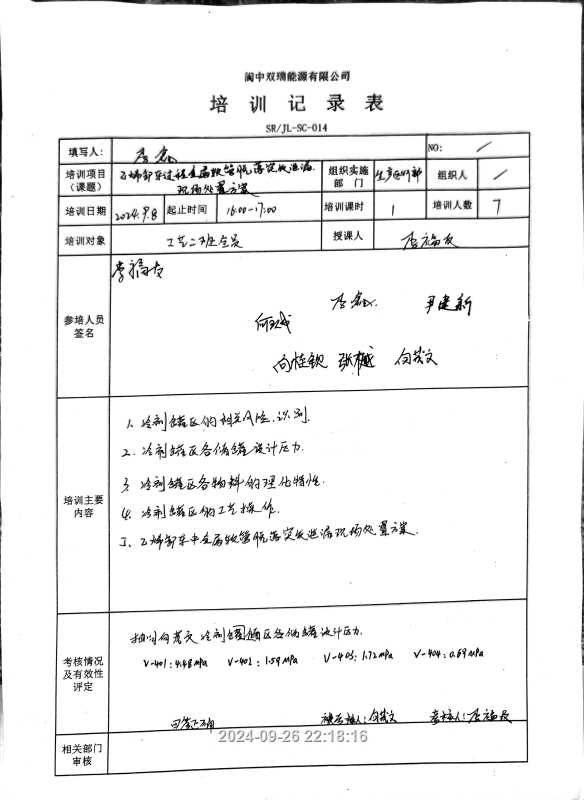 阆中双瑞能源有限公司
培训记录表
SR/JL-SC-014
填写人： 李磊 NO: /
培训项目（课题） 乙烯卸车过程金属软管脱落突发泄漏现场处置方案 组织实施部门 生产运行部 组织人 /
培训日期 2024.9.8 起止时间 16:00-17:00 培训课时 1 培训人数 7
培训对象 工艺二班全员 授课人 李福友
参培人员签名
李福友
李磊 尹建新
何斌
向桂钦 张樾 向黄文
培训主要内容
1、冷剂罐区的相关风险识别.
2、冷剂罐区各储罐设计压力.
3、冷剂罐区各物料的理化特性.
4、冷剂罐区的工艺操作.
5、乙烯卸车中金属软管脱落突发泄漏现场处置方案.
考核情况及有效性评定
抽问向黄文冷剂罐区各储罐设计压力.
V-401：4.48MPa V-402：1.59MPa V-403：1.72MPa V-404：0.69MPa
回答正确 被考核人：向黄文 考核人：李福友
2024-09-26 22:18:16
相关部门审核